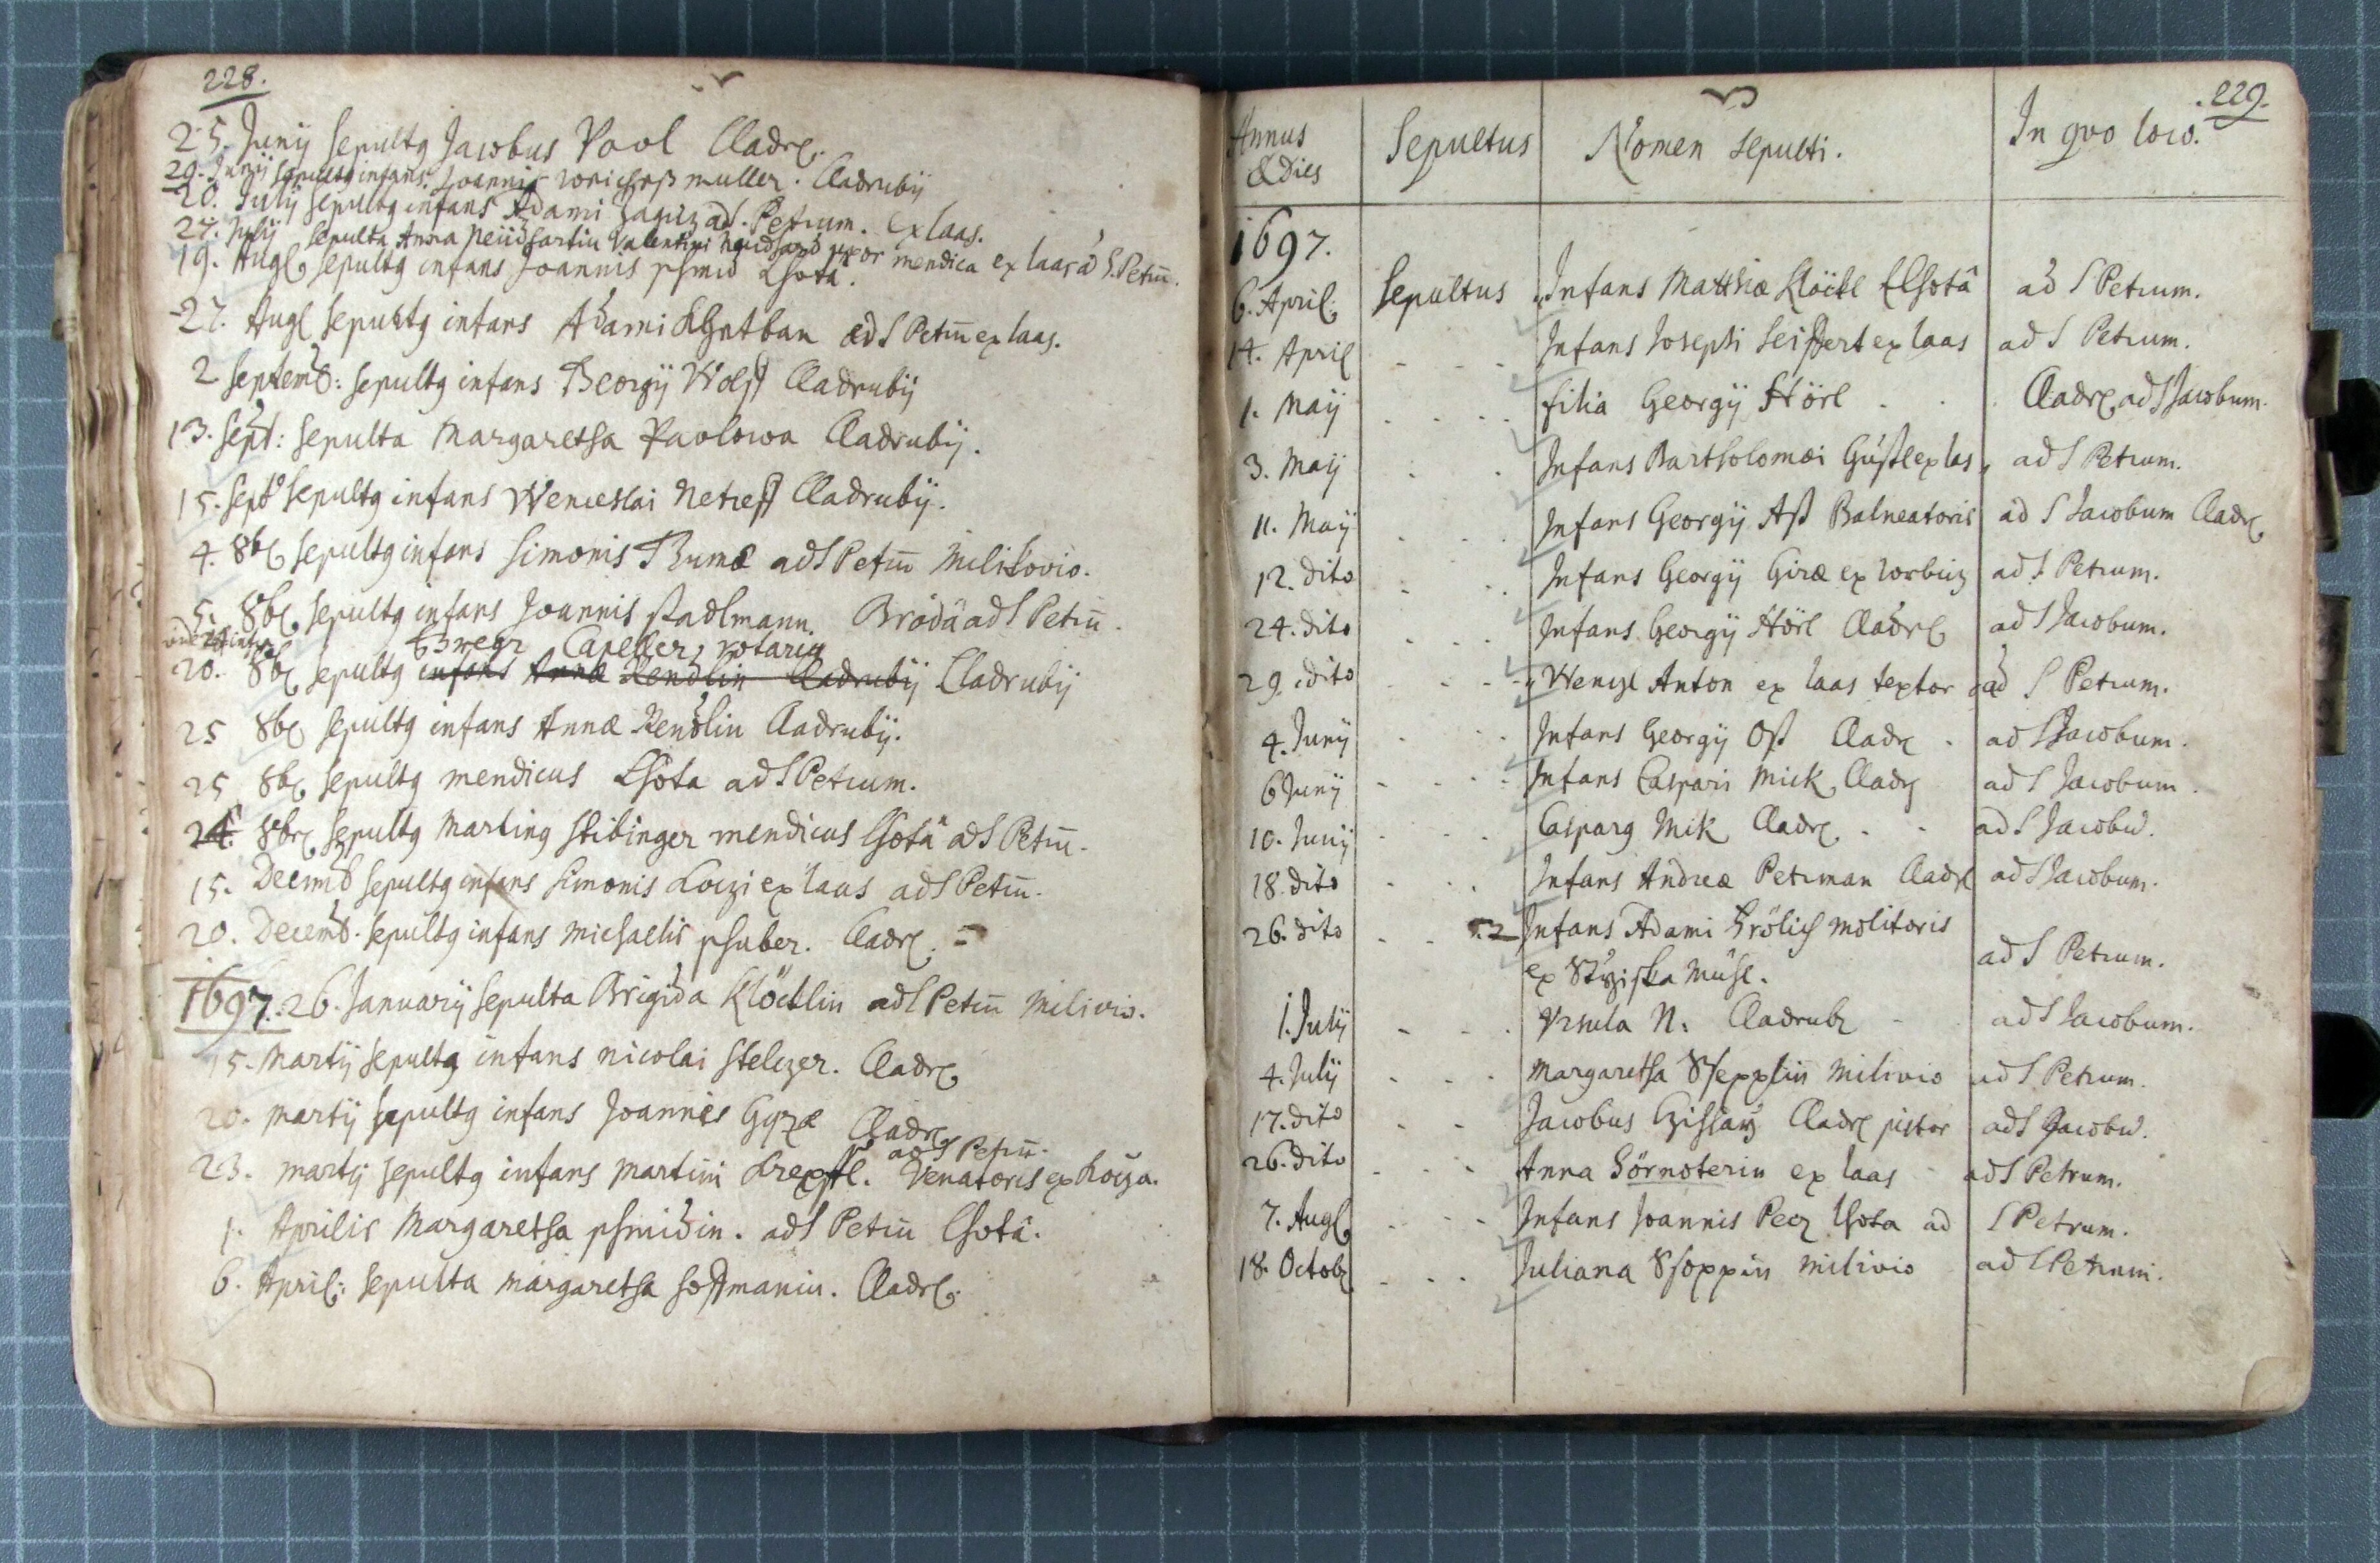 228.
25. Junij sepultq Jacobus Pavl Cladr.
29. Junij sepultq infans Joannis muller. Cladrubij
20. Julij sepultq infans Adami ad. Petrum. Ex laas.
27. Julij sepulta Anna Neüdhartin Valentini uxor mendica ex laas ad S. Petrū.
19. Aug. sepultq infans Joannis Lhota.
27. Aug sepultq infans Adami ad S Petrū ex laas.
2 Septemb: sepultq infans Georgij Wolff Cladrubij
13. Sept: sepulta Margaretha Pavlowa Cladrubij.
15. Sept sepultq infans Wenceslai Cladrubij.
4. 8b sepultq infans Simonis Thumæ ad S Petrū Milikovio.
5. 8b sepultq infans Joannis Stadlmann. Broda ad S Petrū.
Capeller, notariq
20. 8b sepultq infans Annæ Rendlin Cladrubij Cladrubij
25 8b sepultq infans Annæ Rendlin Cladrubij.
25 8b sepultq mendicus Lhota ad S Petrum.
8br sepultq Martinq Stibinger mendicus Lhota ad S Petrū.
15. Decemb sepultq infans Simonis ex laas ad S Petrū.
20. Decemb. sepultq infans Michaelis Cladr.
1697. 26. Januarij sepulta Brigida Klöcklin ad S Petrū Milivio.
15. Martij sepultq infans Nicolai Stelczer. Cladr
20. Martij sepultq infans Joannis Cladr
ad S Petrū.
23. Martij sepultq infans Martini Venatoris ex
1. Aprilis Margaretha ad S Petrū Lhota.
6. April: sepulta Margaretha Hoffmanin. Cladr.
229.
Annus & dies Sepultus Nomen sepulti. In qvo loco.
1697.
6. April: Sepultus Infans Matthiæ Klöckl Lhotâ ad S Petrum.
14. April - - - Infans Josephi Seiffert ex laas ad S Petrum.
1. Maij - - - filia Georgij Hörl - - Cladr ad S Jacobum.
3. Maij - - Infans Bartholomæi ex las, ad S Petrum.
11. Maij - - - Infans Georgij Balneatoris ad S Jacobum Cladr
12. dito - - Infans Georgij Giræ ex ad S Petrum.
24. dito - - - Infans Georgij Hörl Cladr ad S Jacobum.
29. dito - - - Wenczl Anton ex laas textor ad S Petrum.
4. Junij - - Infans Georgij Ost Cladr - ad S Jacobum.
6 Junij - - - Infans Caspari Mick Cladr ad S Jacobum.
10. Junij - - - Casparq Mik Cladr. - - ad S Jacobū.
18. dito - - Infans Andreæ Petrman Cladr ad S Jacobum.
26. dito - - - 2 Infans Adami Frölich molitoris
ex Mühl. ad S Petrum.
1. Julij - - - Vrsula N: Cladrub - ad S Jacobum.
4. Julij - - - Margaretha Milivio ad S Petrum.
17. dito - - Jacobus Cladr pistor ad S Jacobū.
26. dito - - - Anna ex laas - ad S Petrum.
7. Aug. - - - Infans Joannis Pecz Lhota ad S Petrum.
18. Octob - - - Juliana Milivio ad S Petrum.